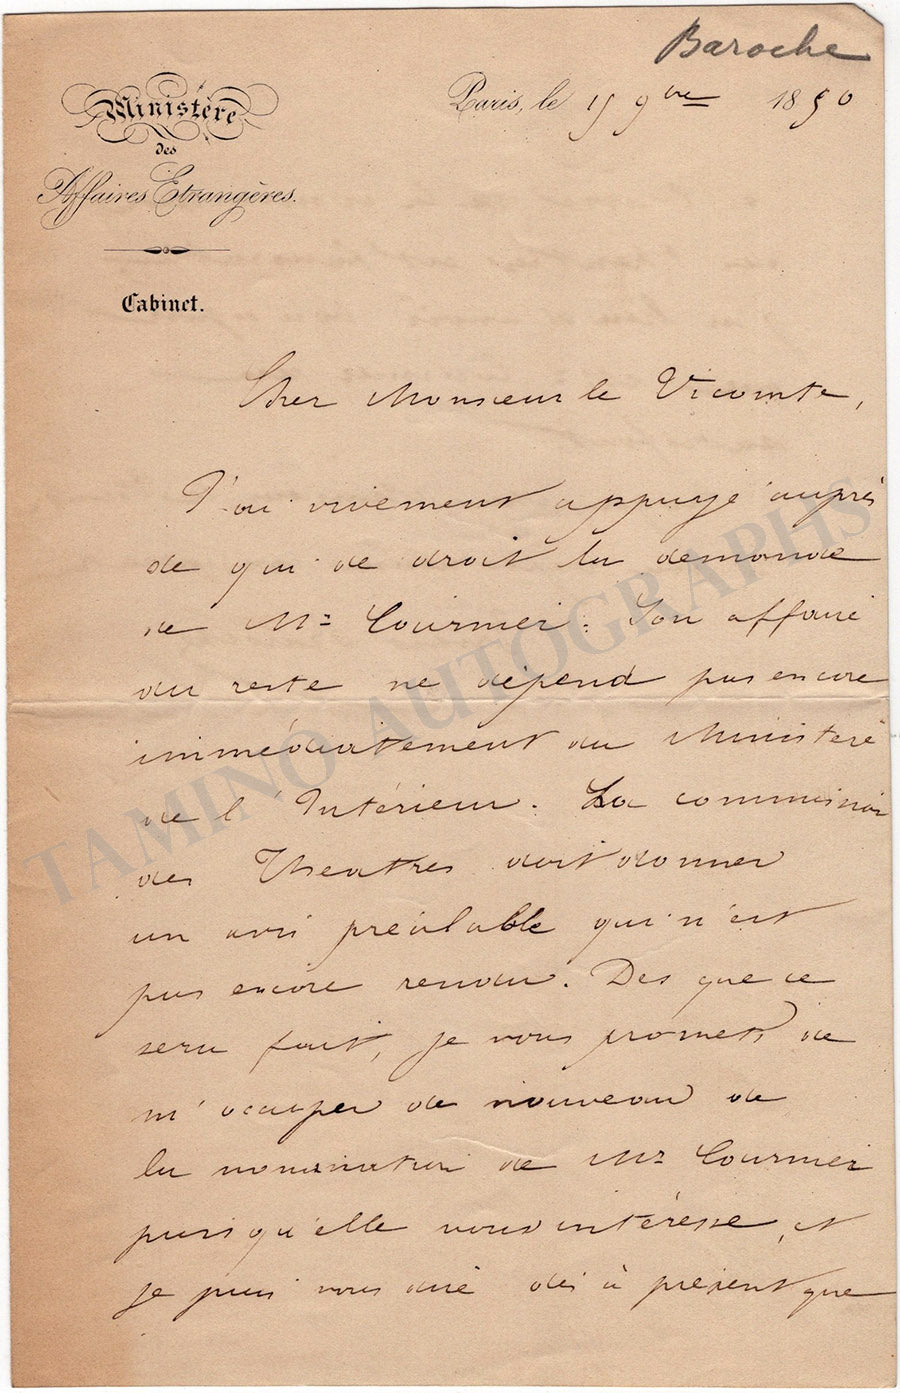 Baroche
Ministère
des
Affaires Etrangères.
Cabinet.
Paris, le 15 9bre 1850
Cher Monsieur le Vicomte,
J'ai vivement appuyé auprès
de qui de droit la demande
de Mr Cournier. Son affaire
du reste ne dépend pas encore
immédiatement du Ministère
de l'Intérieur. La commission
des Theatres doit donner
un avis préalable qui n'est
pas encore rendu. Des que ce
sera fait, je vous promets de
m'occuper de nouveau de
la nomination de Mr Cournier
puisqu'elle vous intéresse, et
je puis vous dire dès à présent que
TAMINO AUTOGRAPHS